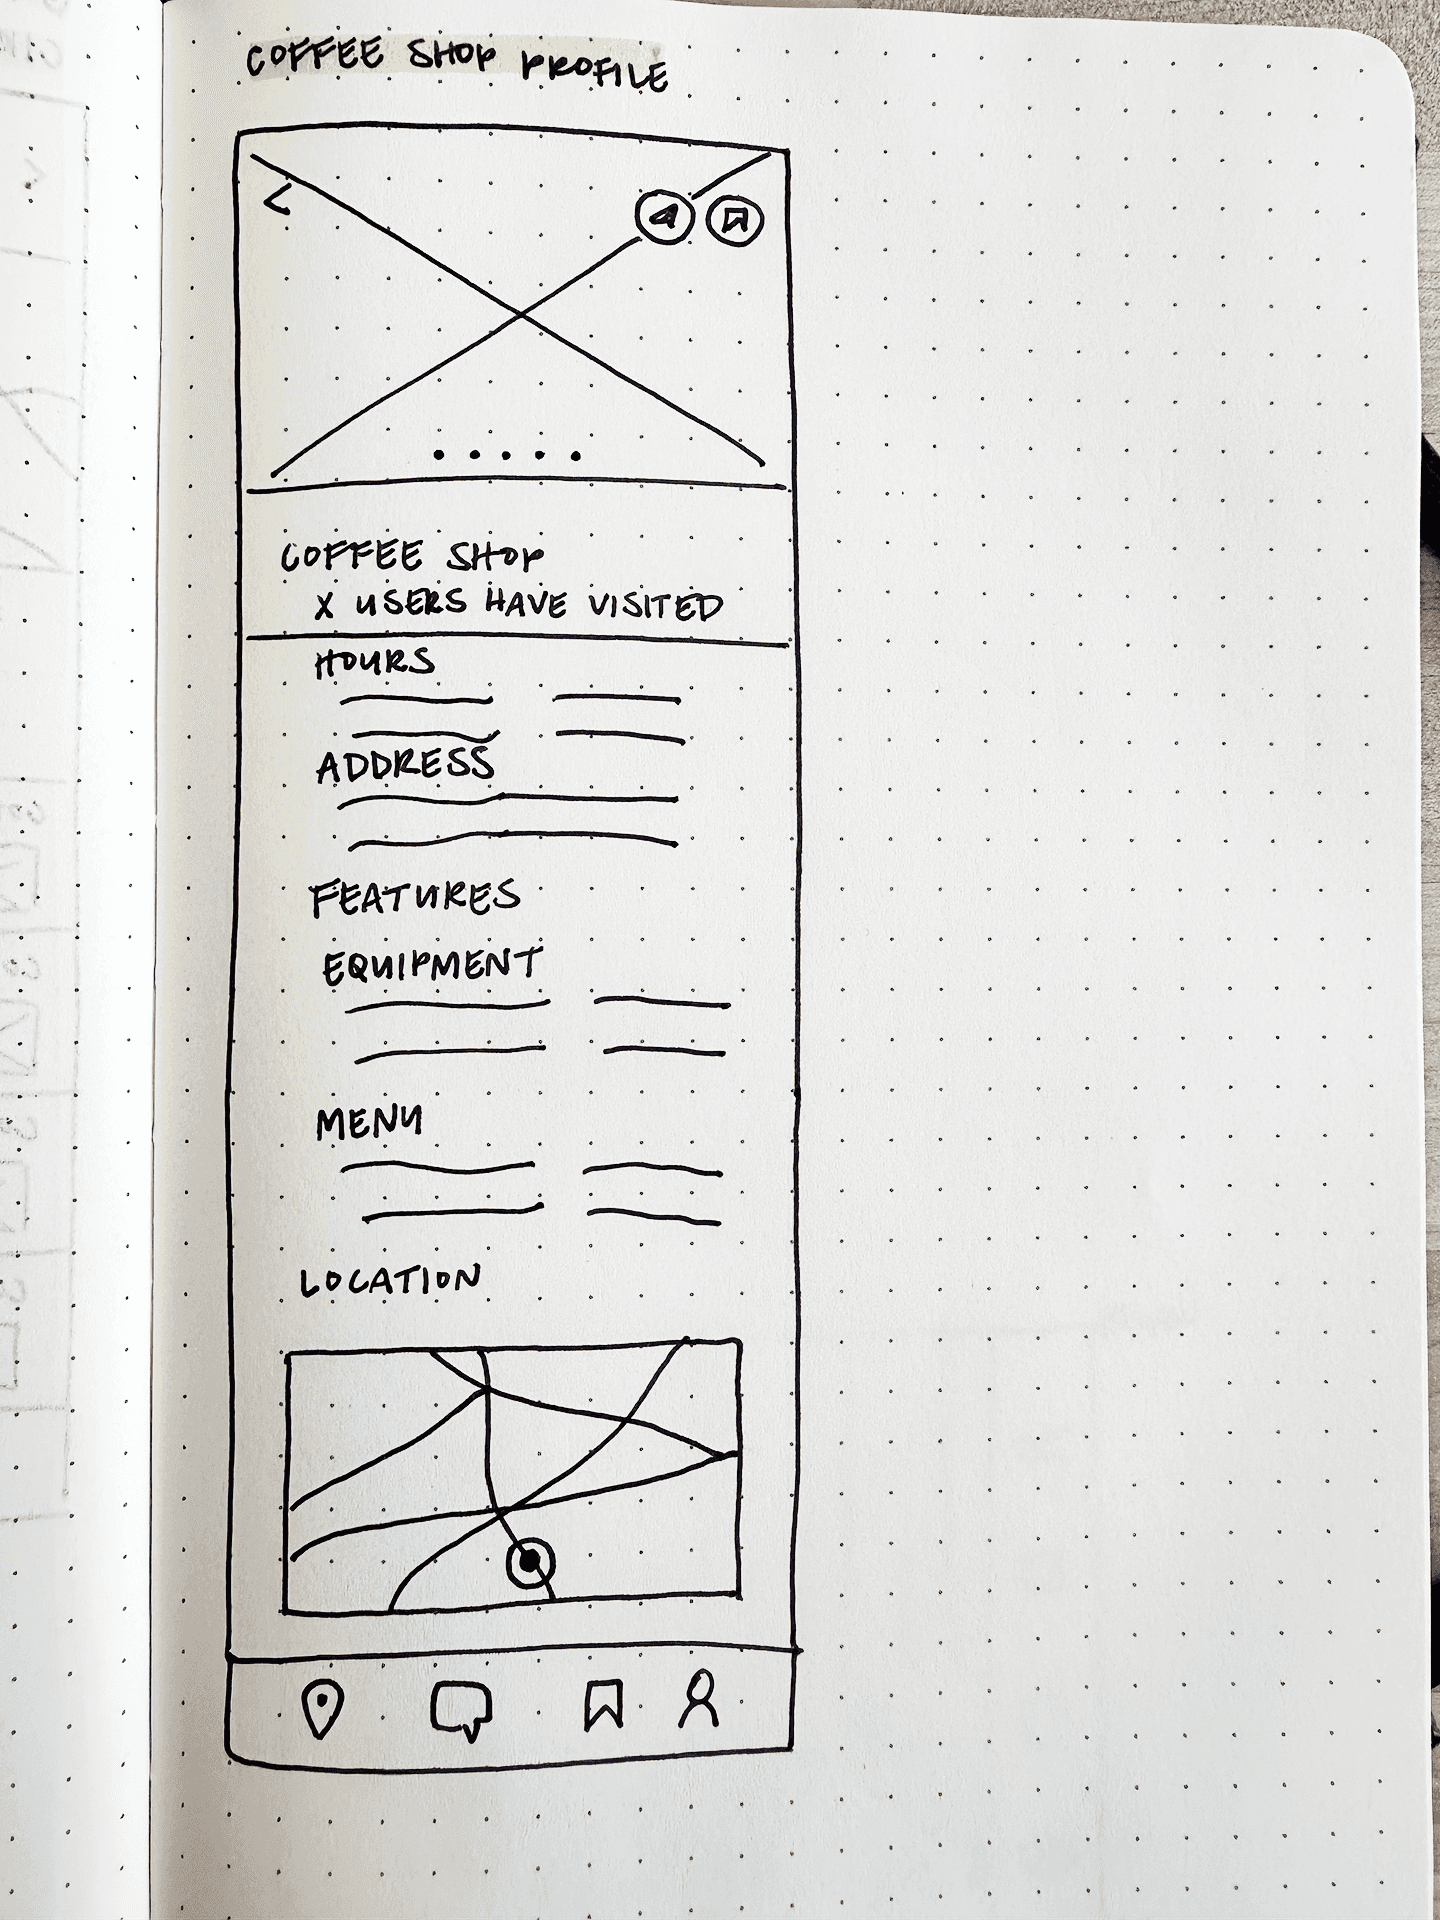 COFFEE SHOP PROFILE
COFFEE SHOP
X USERS HAVE VISITED
HOURS
ADDRESS
FEATURES
EQUIPMENT
MENU
LOCATION